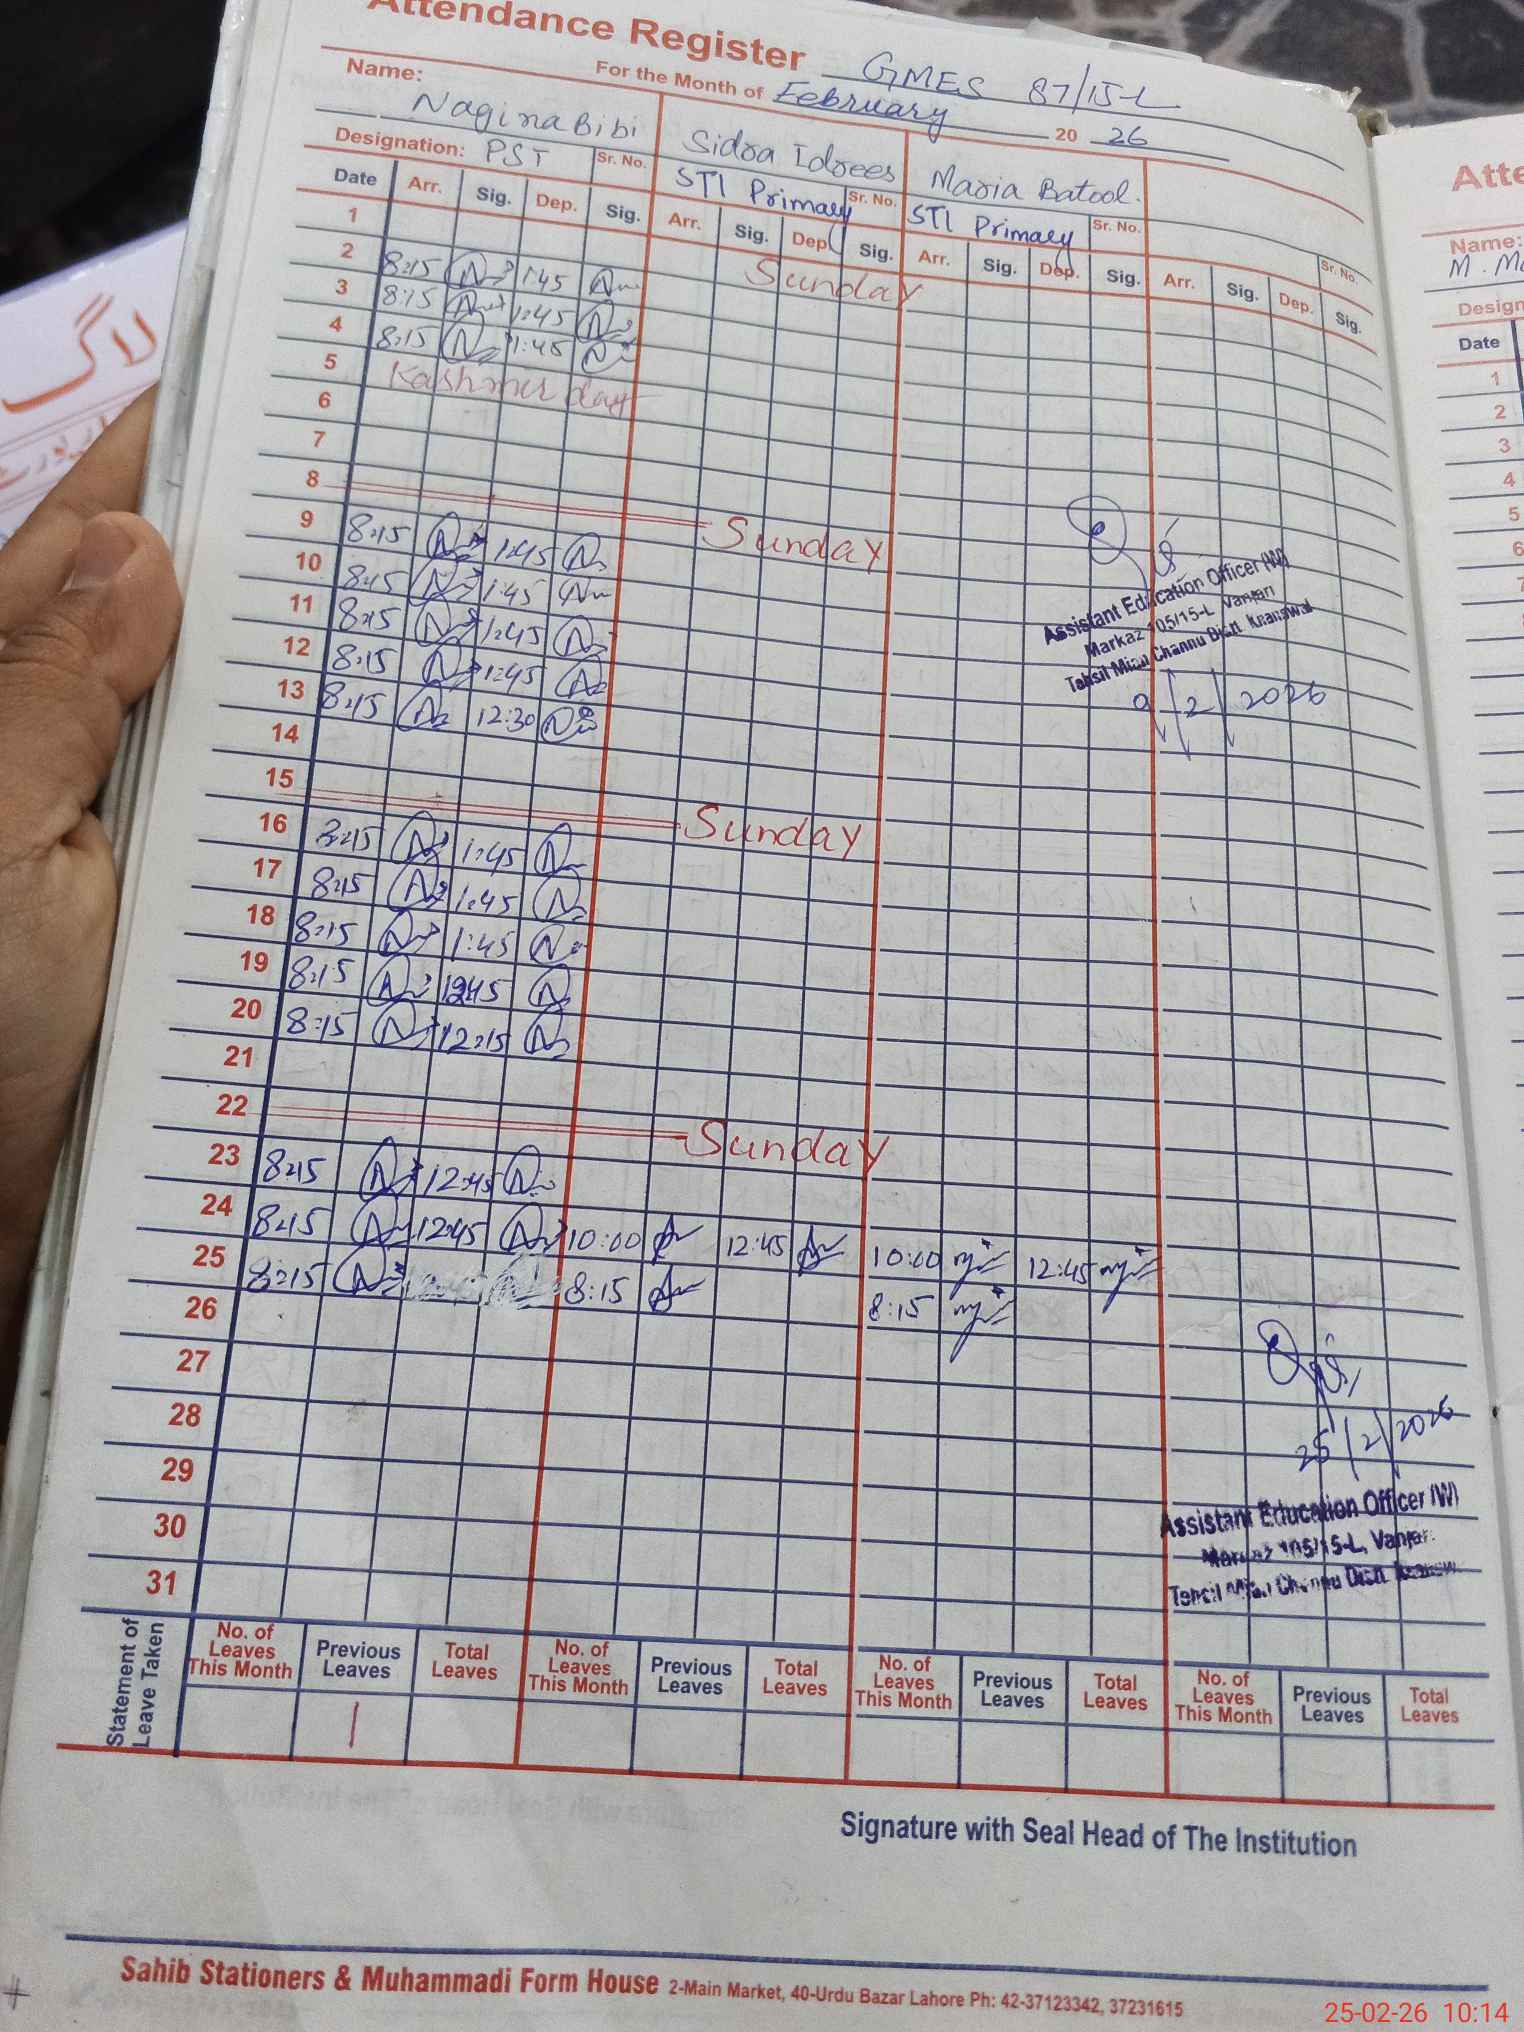 Attendance Register GMES 87/15-L
For the Month of February 20 26
Name: Nagina Bibi Sidra Idrees Maria Batool.
Designation: PST Sr. No. STI Primary Sr. No. STI Primary Sr. No. Sr. No.
Date Arr. Sig. Dep. Sig. Arr. Sig. Dep. Sig. Arr. Sig. Dep. Sig. Arr. Sig. Dep. Sig.
1 Sunday
2 8:15 1:45
3 8:15 1:45
4 8:15 1:45
5 Kashmir day
6
7
8 Sunday
9 8:15 1:45
10 8:15 1:45
11 8:15 1:45
12 8:15 1:45
13 8:15 12:30
14
15 Sunday
16 8:15 1:45
17 8:15 1:45
18 8:15 1:45
19 8:15
20 8:15 12:15
21
22 Sunday
23 8:15 12:45
24 8:15 12:45 10:00 12:45 10:00 12:45
25 8:15 8:15 8:15
26
27
28
29
30
31
Assistant Education Officer (W)
Markaz 105/15-L Vanjari
Tehsil Mian Channu Distt. Khanewal
9/2/2026
25/2/2026
Assistant Education Officer (W)
Markaz 105/15-L, Vanjari
Tehsil Mian Channu Distt.
Statement of Leave Taken
No. of Leaves This Month Previous Leaves Total Leaves No. of Leaves This Month Previous Leaves Total Leaves No. of Leaves This Month Previous Leaves Total Leaves No. of Leaves This Month Previous Leaves Total Leaves
1
Signature with Seal Head of The Institution
Sahib Stationers & Muhammadi Form House 2-Main Market, 40-Urdu Bazar Lahore Ph: 42-37123342, 37231615
لاگ
Atte
Name:
M. Mo
Design
Date
1
2
3
4
5
6
7
25-02-26 10:14